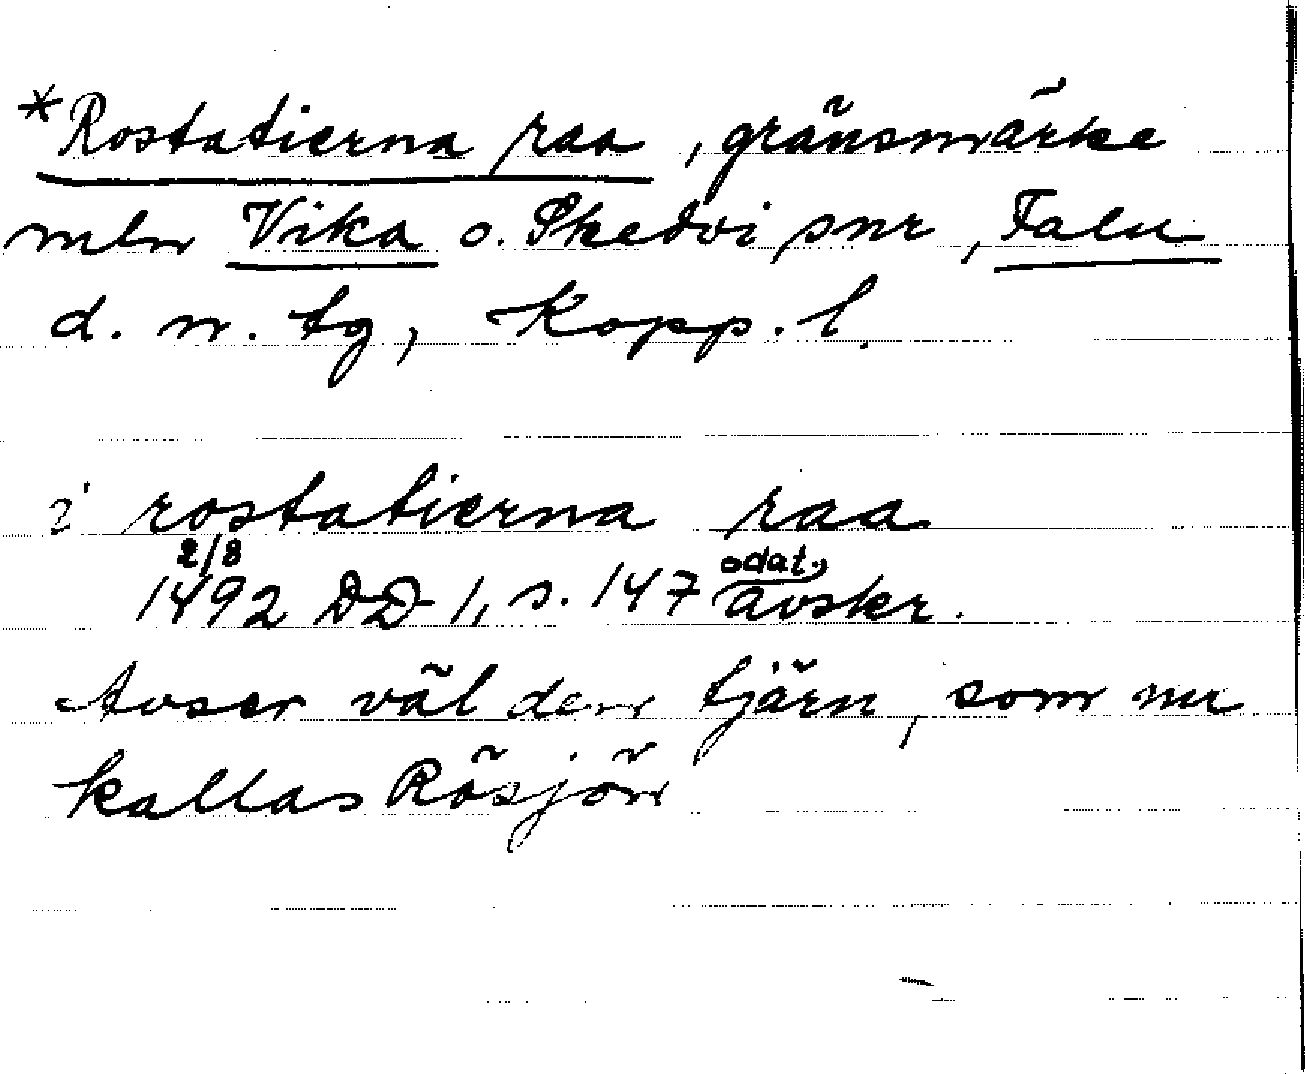 *Rostatierna raa, gränsmärke
mln Vika o. Skedvi snr, Falu
d. n. tg, Kopp. l.
i rostatierna raa
2/8
1492 DD 1, s. 147 odat. avskr.
Avser väl den tjärn, som nu
kallas Rösjön